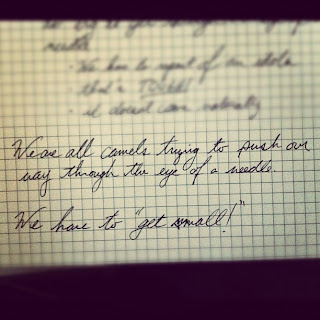 needle
- We have to repent of our idols
that is TOUGH!
it doesn't come naturally
We are all camels trying to push our
way through the eye of a needle.
We have to "get small!"